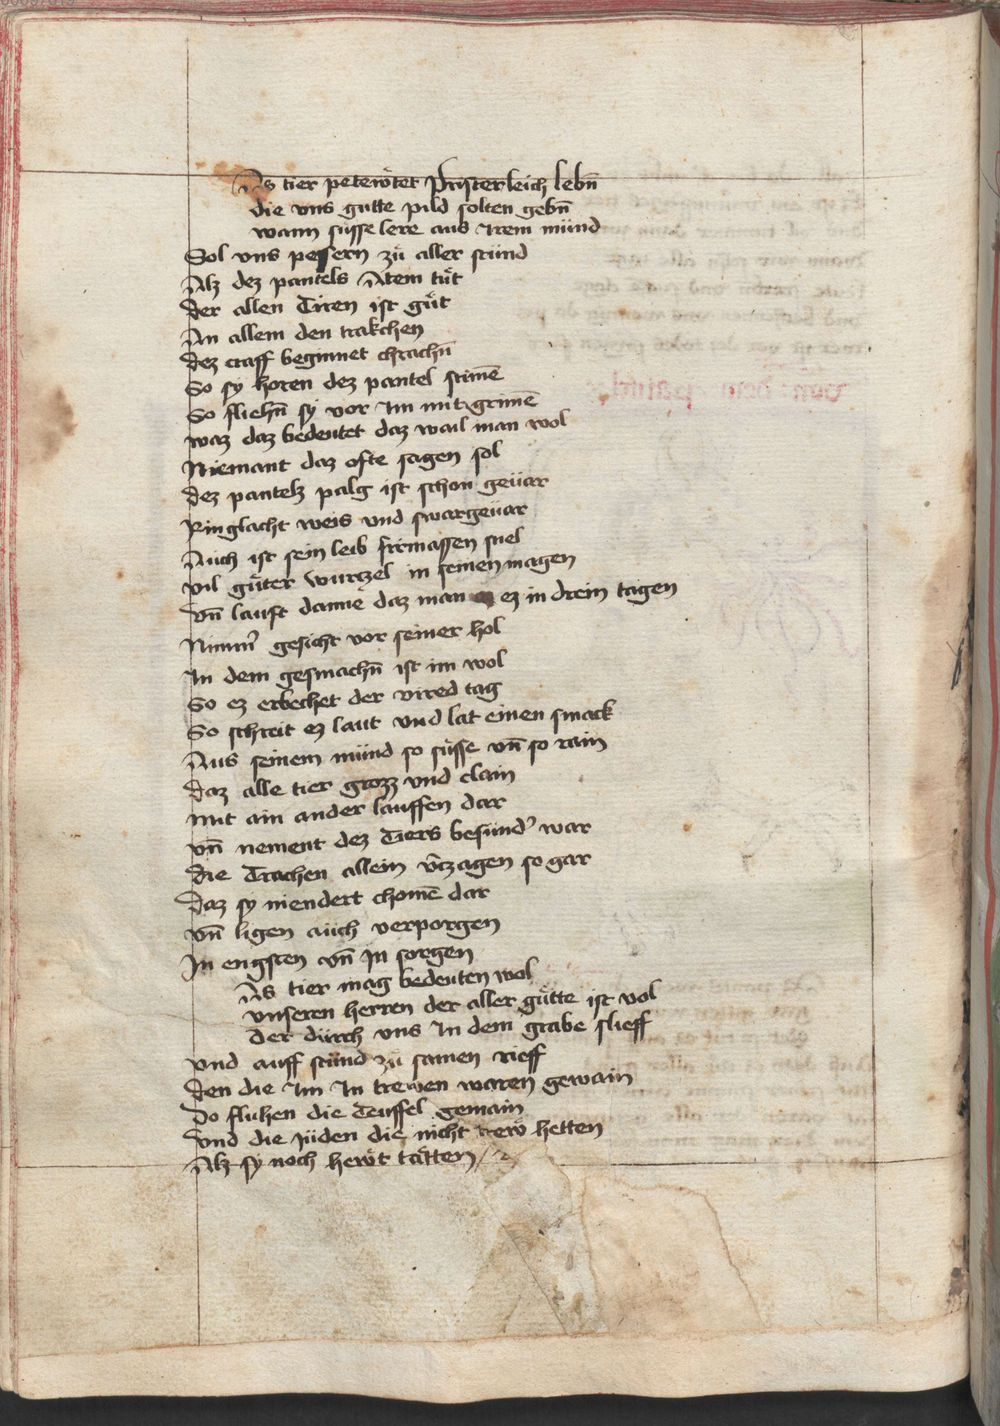 As tier petewtet Pristerleich lebn̄
die vns gutte pild solten gebn̄
wann süsse lere aus Irem münd
Sol vns pessern zü aller stünd
Alz dez pantels Atem tüt
Der allen Tiren ist güt
An allem den trakchen
Dez craff beginnet chrachn̄
So sy horen dez pantel stim̄e
So fliehn̄ sy vor Im mit grim̄e
waz daz bedeutet daz wail man wol
Niemant daz ofte sagen sol
Dez pantelz palg ist schon geüar
Ringlacht weis vnd swargeuar
Auch ist sein leib firmassen snel
vil güter wurczel in seinen magen
Vn̄ lauft dann̄e daz man ez in drein tagen
Nimm̄ gesicht vor seiner hol
In dem gesmachn̄ ist im wol
So ez erbechet der vired tag
So schreit ez laut vnd lat einen smack
Aus seinem münd so süsse vn̄ so rain
Daz alle tier grozz vnd clain
mit ain ander lauffen dar
vn̄ nement dez Tiers besünd' war
Die Trachen allein v̄czagen so gar
Daz sy niendert chom̄e dar
vn̄ ligen auch verporgen
In engsten vn̄ In sorgen
As tier mag bedeuten wol
vnseren herren der aller gütte ist vol
Der dürch vns In dem grabe slieff
vnd auff stünd zü samen rieff
Den die Im In trewen waren gewain
Do fluhen die Teuffel gemain
vnd die Jüden die nicht rew hetten
Alz sy noch hewt tätten